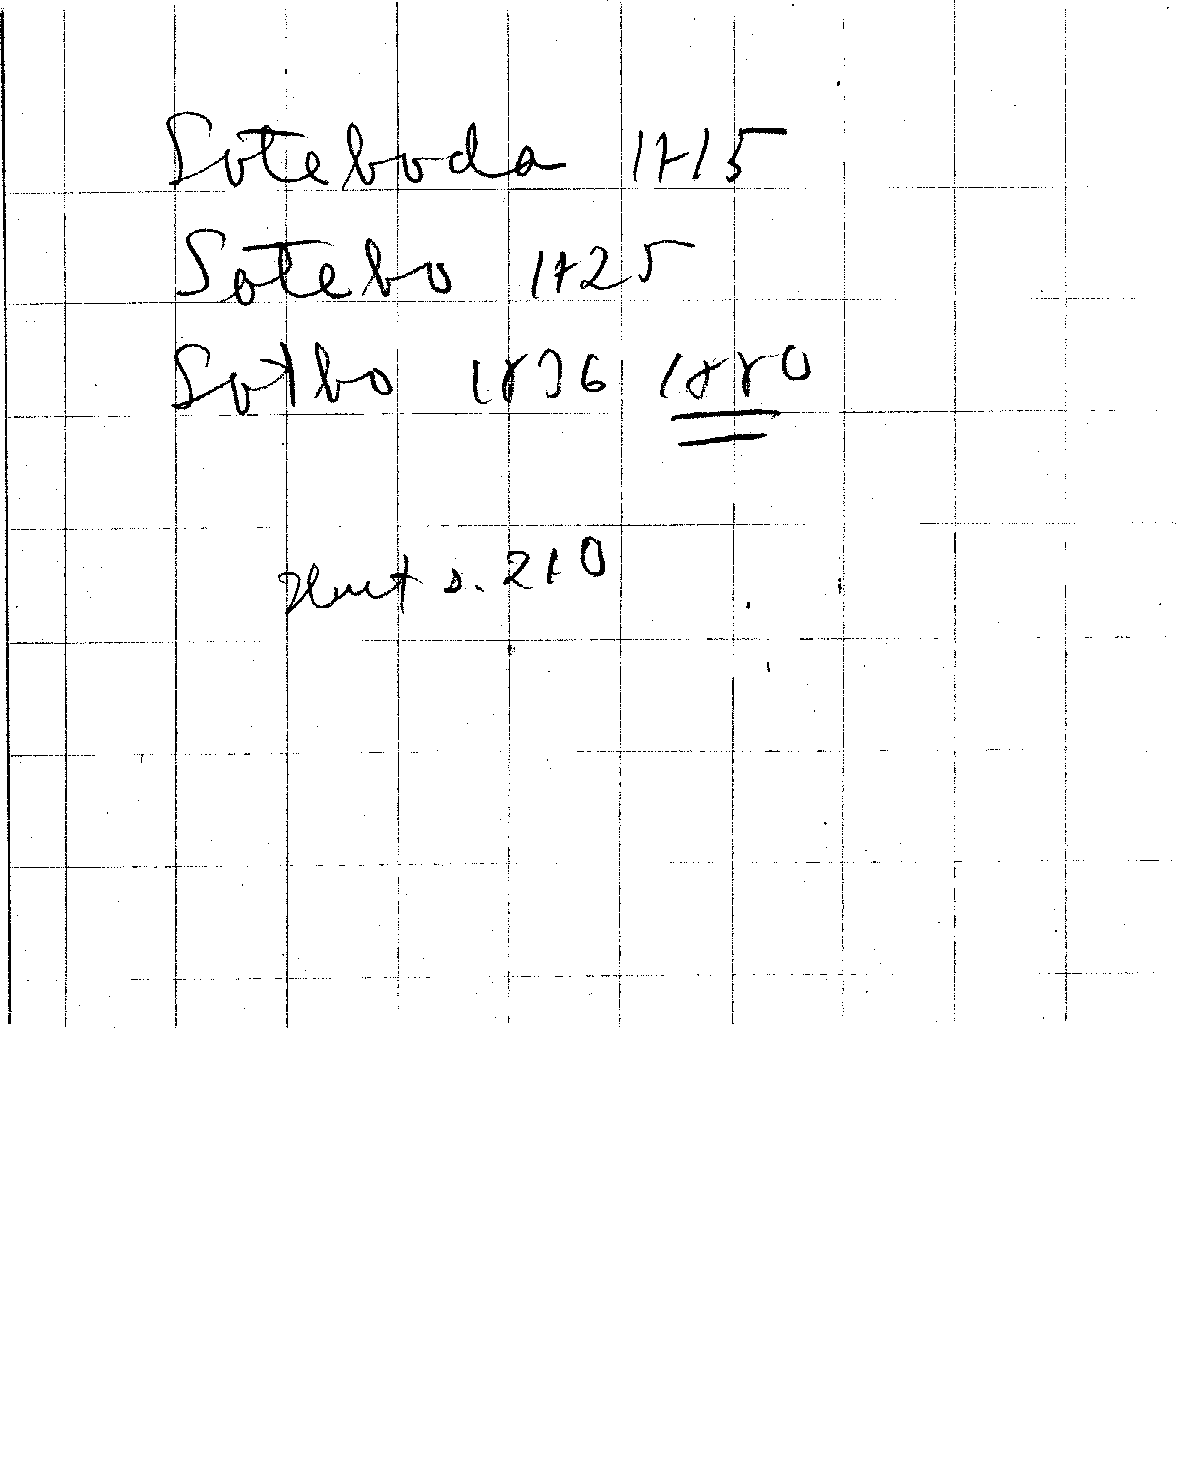 Soteboda 1715
Sotebo 1725
Sotbo 1836 1880
s. 210